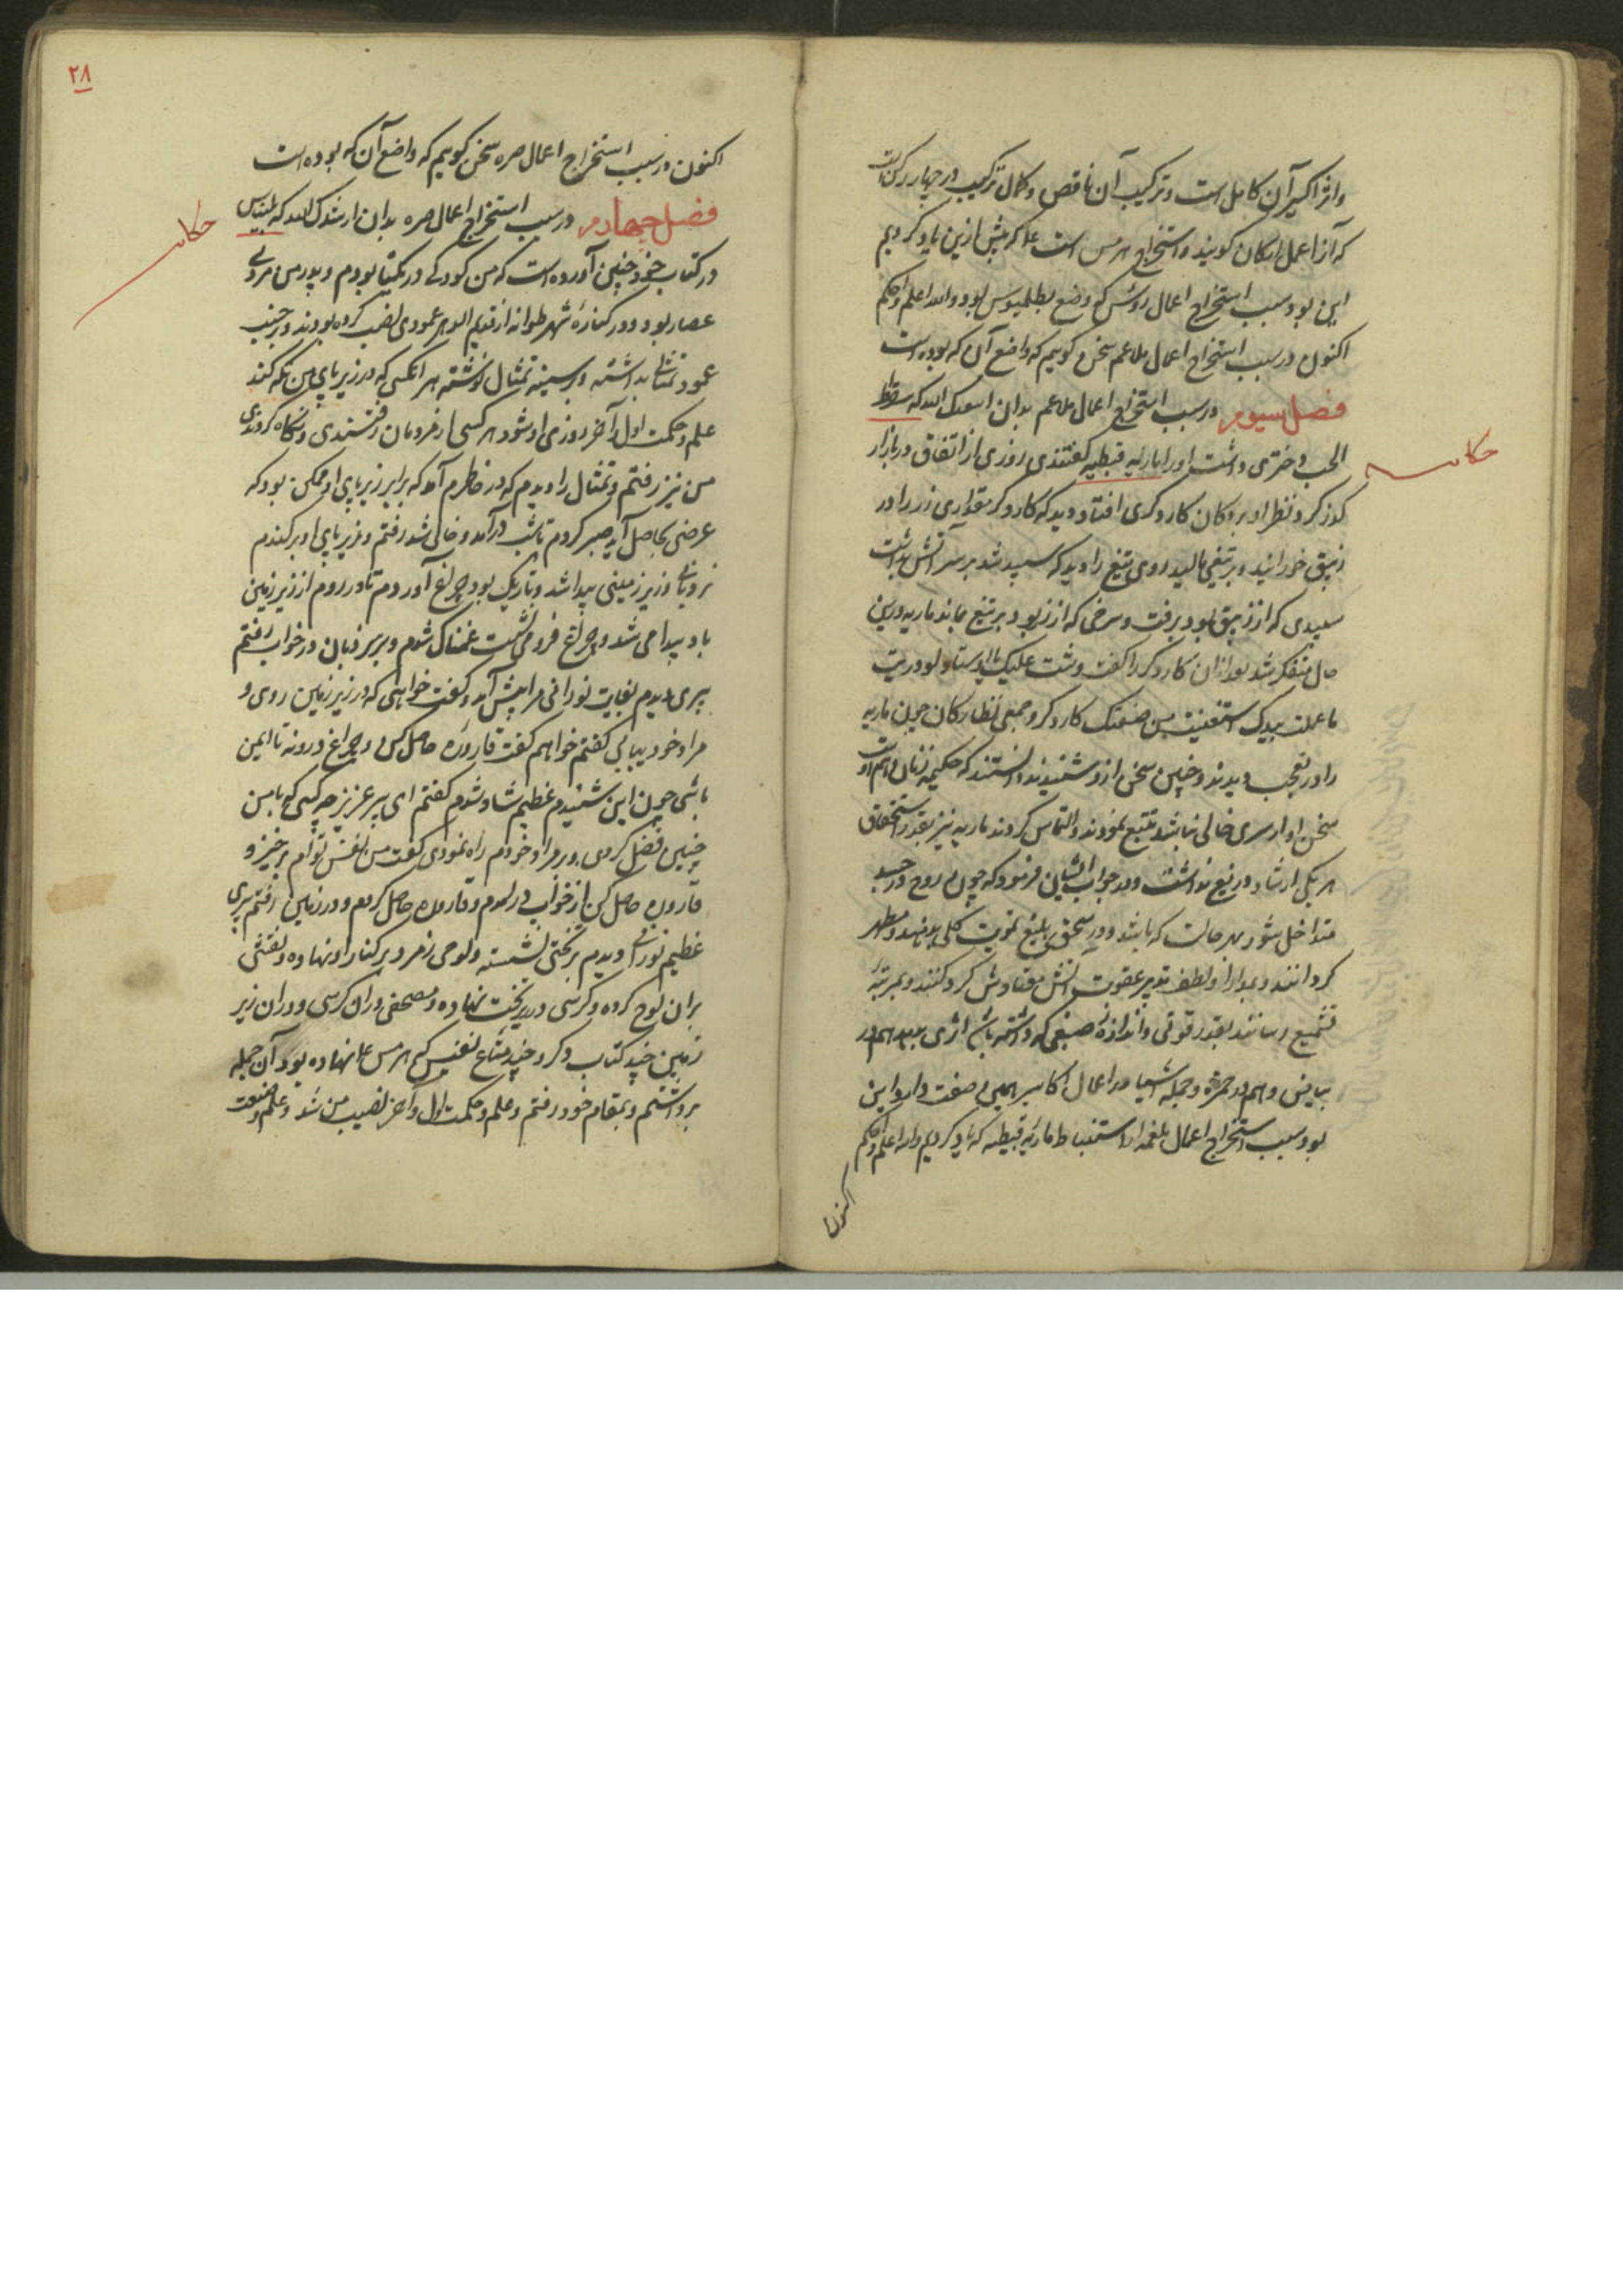 واثر اکسیر آن کامل است وترکیب آن ناقص وکمال ترکیب در چهار رکن است
که آنرا عمل ارکان کویند واستخراج هرمس است علا که پیش ازین یاد کردیم
این بود سبب استخراج اعمال روس که وضع بطلمیوس بود والله اعلم واحکم
اکنون در سبب استخراج اعمال ملاعم سخن کویم که واضع آن که بوده است
فصل سیوم در سبب استخراج اعمال ملاعم بدان اسعدک الله که سقراط
حکایت
الحب دختری داشت اورا ماریه قبطیه کفتندی روزی از اتفاق در بازار
کذر کرد نظر او بر دکان کاردکری افتاد دید که کاردکر مقداری زر را در
زیبق خورانید وبر تیغی مالید روی تیغ را دید که سپید شد بر سر آتش بداشت
سپیدی که از زیبق بود برفت وسرخی که از زر بود بر تیغ بماند ماریه درین
حال متفکر شد بعد از آن کاردکر را کفت وشت علیک یا اوستاد لو دریت
ما عملت بیدک استغنیت من صنعتک کاردکر وجمعی نظارکان چون ماریه
را در تعجب دیدند وچنین سخن ازو شنیدند دانستند که حکیمه زنان
سخن او از سری خالی نباشد تتبع نمودند والتماس کردند ماریه نیز بقدر استحقاق
هر یکی ارشاد دریغ نداشت ودر جواب ایشان فرمود که چون روح در جسد
متداخل شود بهر حالت که باشد ودر سحق بلیغ تمویت کلی بدهند ومطهر
کردانند وبمدارا ولطف تدبیر عقوبت آتش معتادش کردکنند وبمرتبه
تشمیع رسانند بقدر قوتی واندازه صبغی که داشته باشد اثری بدهد هم در
بیاض وهم در حمره وجمله اشیا در اعمال اکاسیر همین صفت دارد این
بود سبب استخراج اعمال بلغمه از استنباط ماریه قبطیه که یاد کردیم والله اعلم واحکم
اکنون
۲۸
اکنون در سبب استخراج اعمال صره سخن کویم که واضع آن که بوده است
فصل چهارم در سبب استخراج اعمال صره بدان ارشدک الله که بلیناس
حکایت
در کتاب خود چنین آورده است که من کودکی در یکتبا بودم وپدر من مردی
عصار بود ودر کناره شهر طوانه از قدیم الدهر عمودی نصب کرده بودند وبر جنب
عمود تمثالی بداشته وبر سینه تمثال نوشته هر انکس که در زیر پای من نکه کند
علم وحکمت اول وآخر روزی او شود هر کسی از مردمان رفتندی ونکاه کردندی
من نیز رفتم وتمثال را دیدم که در خاطرم آمد که برابر زیر پای او ممکن بود که
عرضی بحاصل آید صبر کردم تا شب درآمد وخالی شد رفتم وزیر پای او برکندم
نردبانی وزیر زمینی پیدا شد وتاریک بود چراغ آوردم تا در روم از زیر زمین
باد پیدا می شد وچراغ فرو می نشست غمناک شدم وبر سر نردبان در خواب رفتم
پیری دیدم بغایت نورانی مرا پیش آمد وکفت خواهی که در زیر زمین روی و
مراد خود بیابی کفتم خواهم کفت قاروره حاصل کن وچراغ درونه تا ایمن
باشی چون این شنیدم عظیم شاد شدم کفتم ای پیر عزیز چه کسی که با من
چنین فضل کردی وبر مراد خودم راه نمودی کفت من نفس توام برخیز و
قاروره حاصل کن از خواب در آمدم وقاروره حاصل کردم ودر زمین رفتم پیری
عظیم نورانی دیدم بر تختی نشسته ولوحی زمرد بر کنار او نهاده ونقشی
بران لوح کرده وکرسی در زیر تخت نهاده ومصحفی بران کرسی ودران زیر
زمین چند کتاب دکر وچند متاع نفیس که هرمس علا نهاده بود آن جمله
برداشتم وبمقام خود رفتم وعلم وحکمت اول وآخر نصیب من شد وعلم صنعت